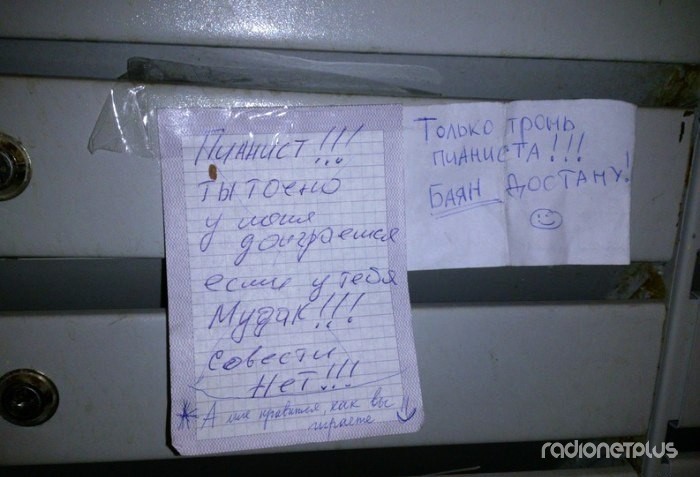 Пианист!!!
ты точно
у меня
доиграешся
если у тебя
Мудак!!!
совести
нет!!!
* А мне нравится, как вы
играете
Только тронь
пианиста!!!
Баян достану!
radionetplus